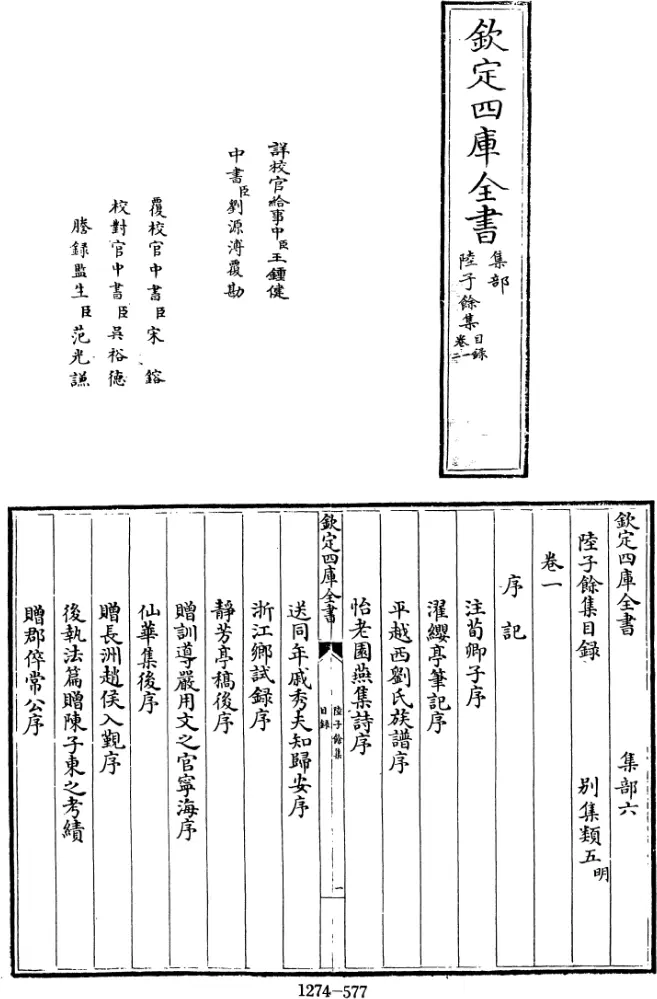 欽定四庫全書
集部
陸子餘集
目錄
卷一
二
詳校官給事中臣王鍾健
中書臣劉源溥覆勘
覆校官中書臣宋鎔
校對官中書臣吳裕德
謄錄監生臣范光謙
欽定四庫全書 集部六
陸子餘集目錄 別集類五明
卷一
序記
注荀卿子序
濯纓亭筆記序
平越西劉氏族譜序
怡老園燕集詩序
欽定四庫全書
陸子餘集
目錄
一
送同年戚秀夫知歸安序
浙江鄉試錄序
靜芳亭稿後序
贈訓導嚴用文之官寧海序
仙華集後序
贈長洲趙侯入覲序
後執法篇贈陳子東之考績
贈郡倅常公序
1274-577